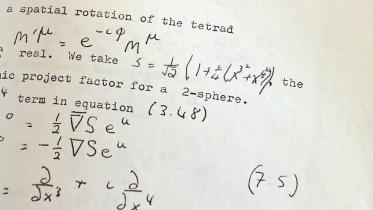 a spatial rotation of the tetrad
m'^μ = e^{-iφ} m^μ
real. We take S = 1/√2 (1 + 1/4 (x^{3²} + x^{4²})), the
project factor for a 2-sphere.
term in equation (3.48)
° = 1/2 ∇̄S e^u
= -1/2 ∇S e^u
= ∂/∂x³ + i ∂/∂x⁴ (7.5)